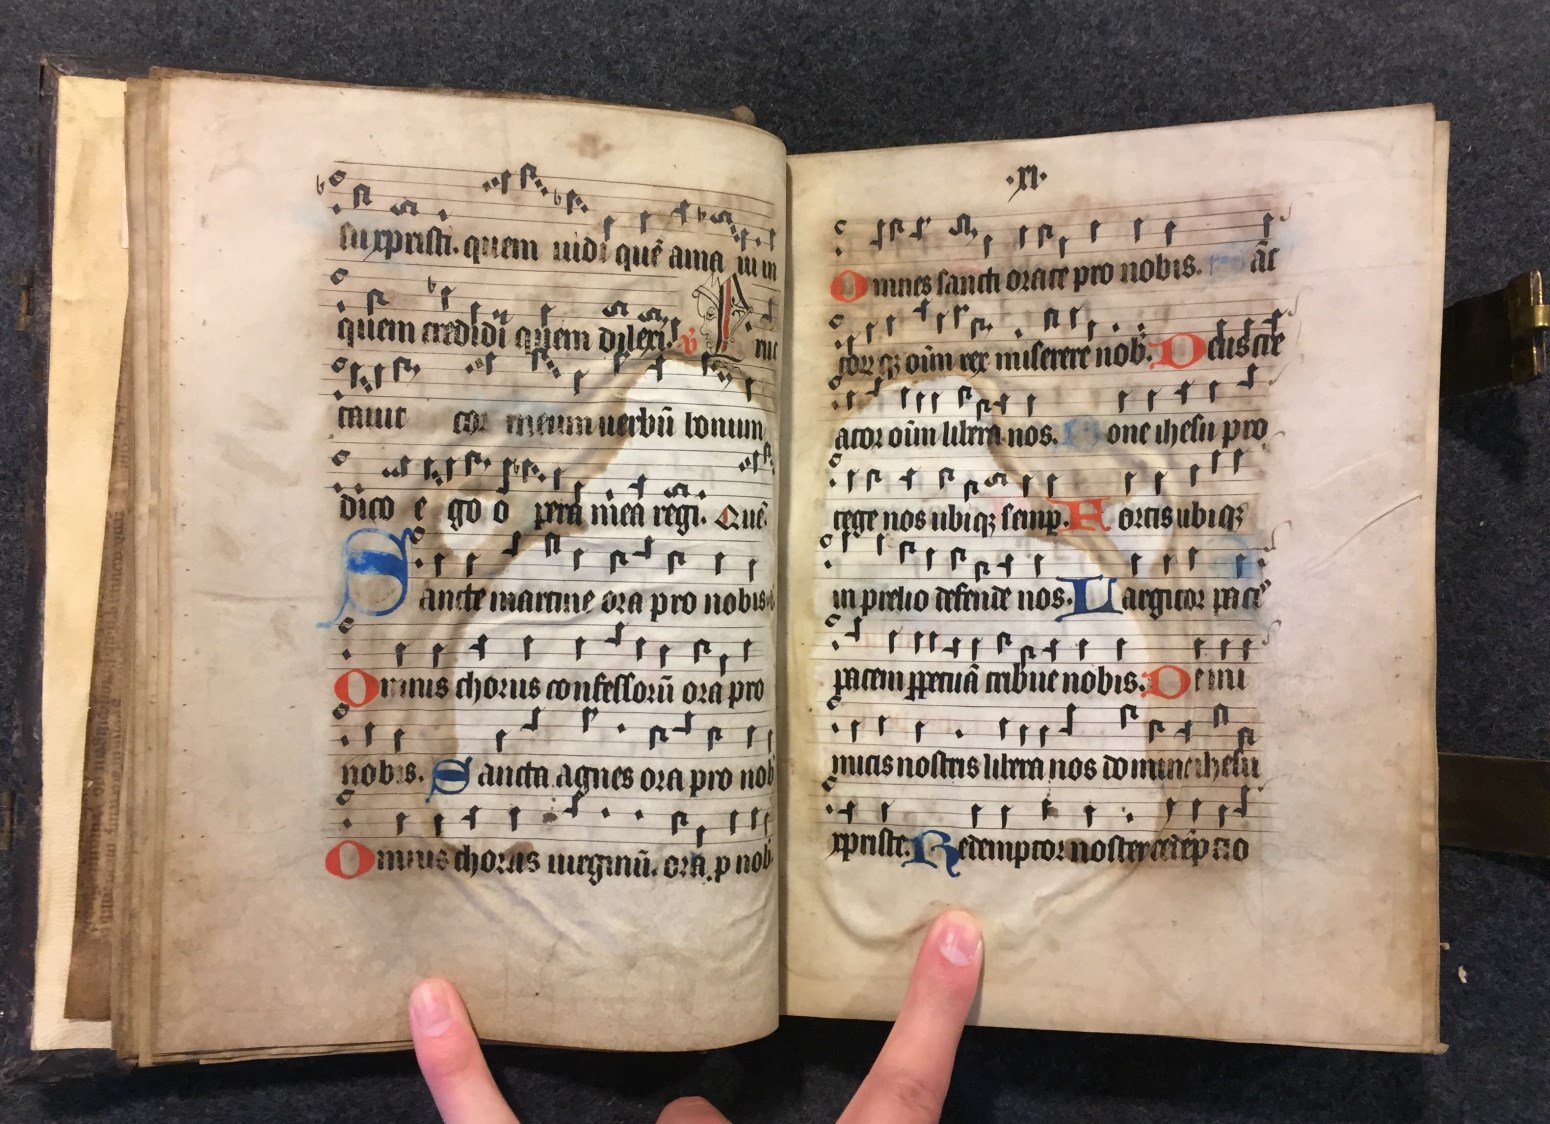 su xpristi. quem uidi quē ama ui in
quem credidi quem dilexi. ℣ Eruc
tauit cor meum uerbū bonum
dico ego opera mea regi. Quē.
Sancte martine ora pro nobis.
Omnis chorus confessorū ora pro
nobis. Sancta agnes ora pro nob
Omnis chorus uirginū. ora. p nob
·XI·
Omnes sancti orate pro nobis.
oīm rex miserere nob. Deus cre
ator oīm libera nos. one ihesu pro
tege nos ubiqꝫ semp. Fortis ubiqꝫ
in prelio defende nos. Largitor paci
pacem ꝑpetuā tribue nobis. De ini
micis nostris libera nos domine ihesu
xpriste. Redemptor noster